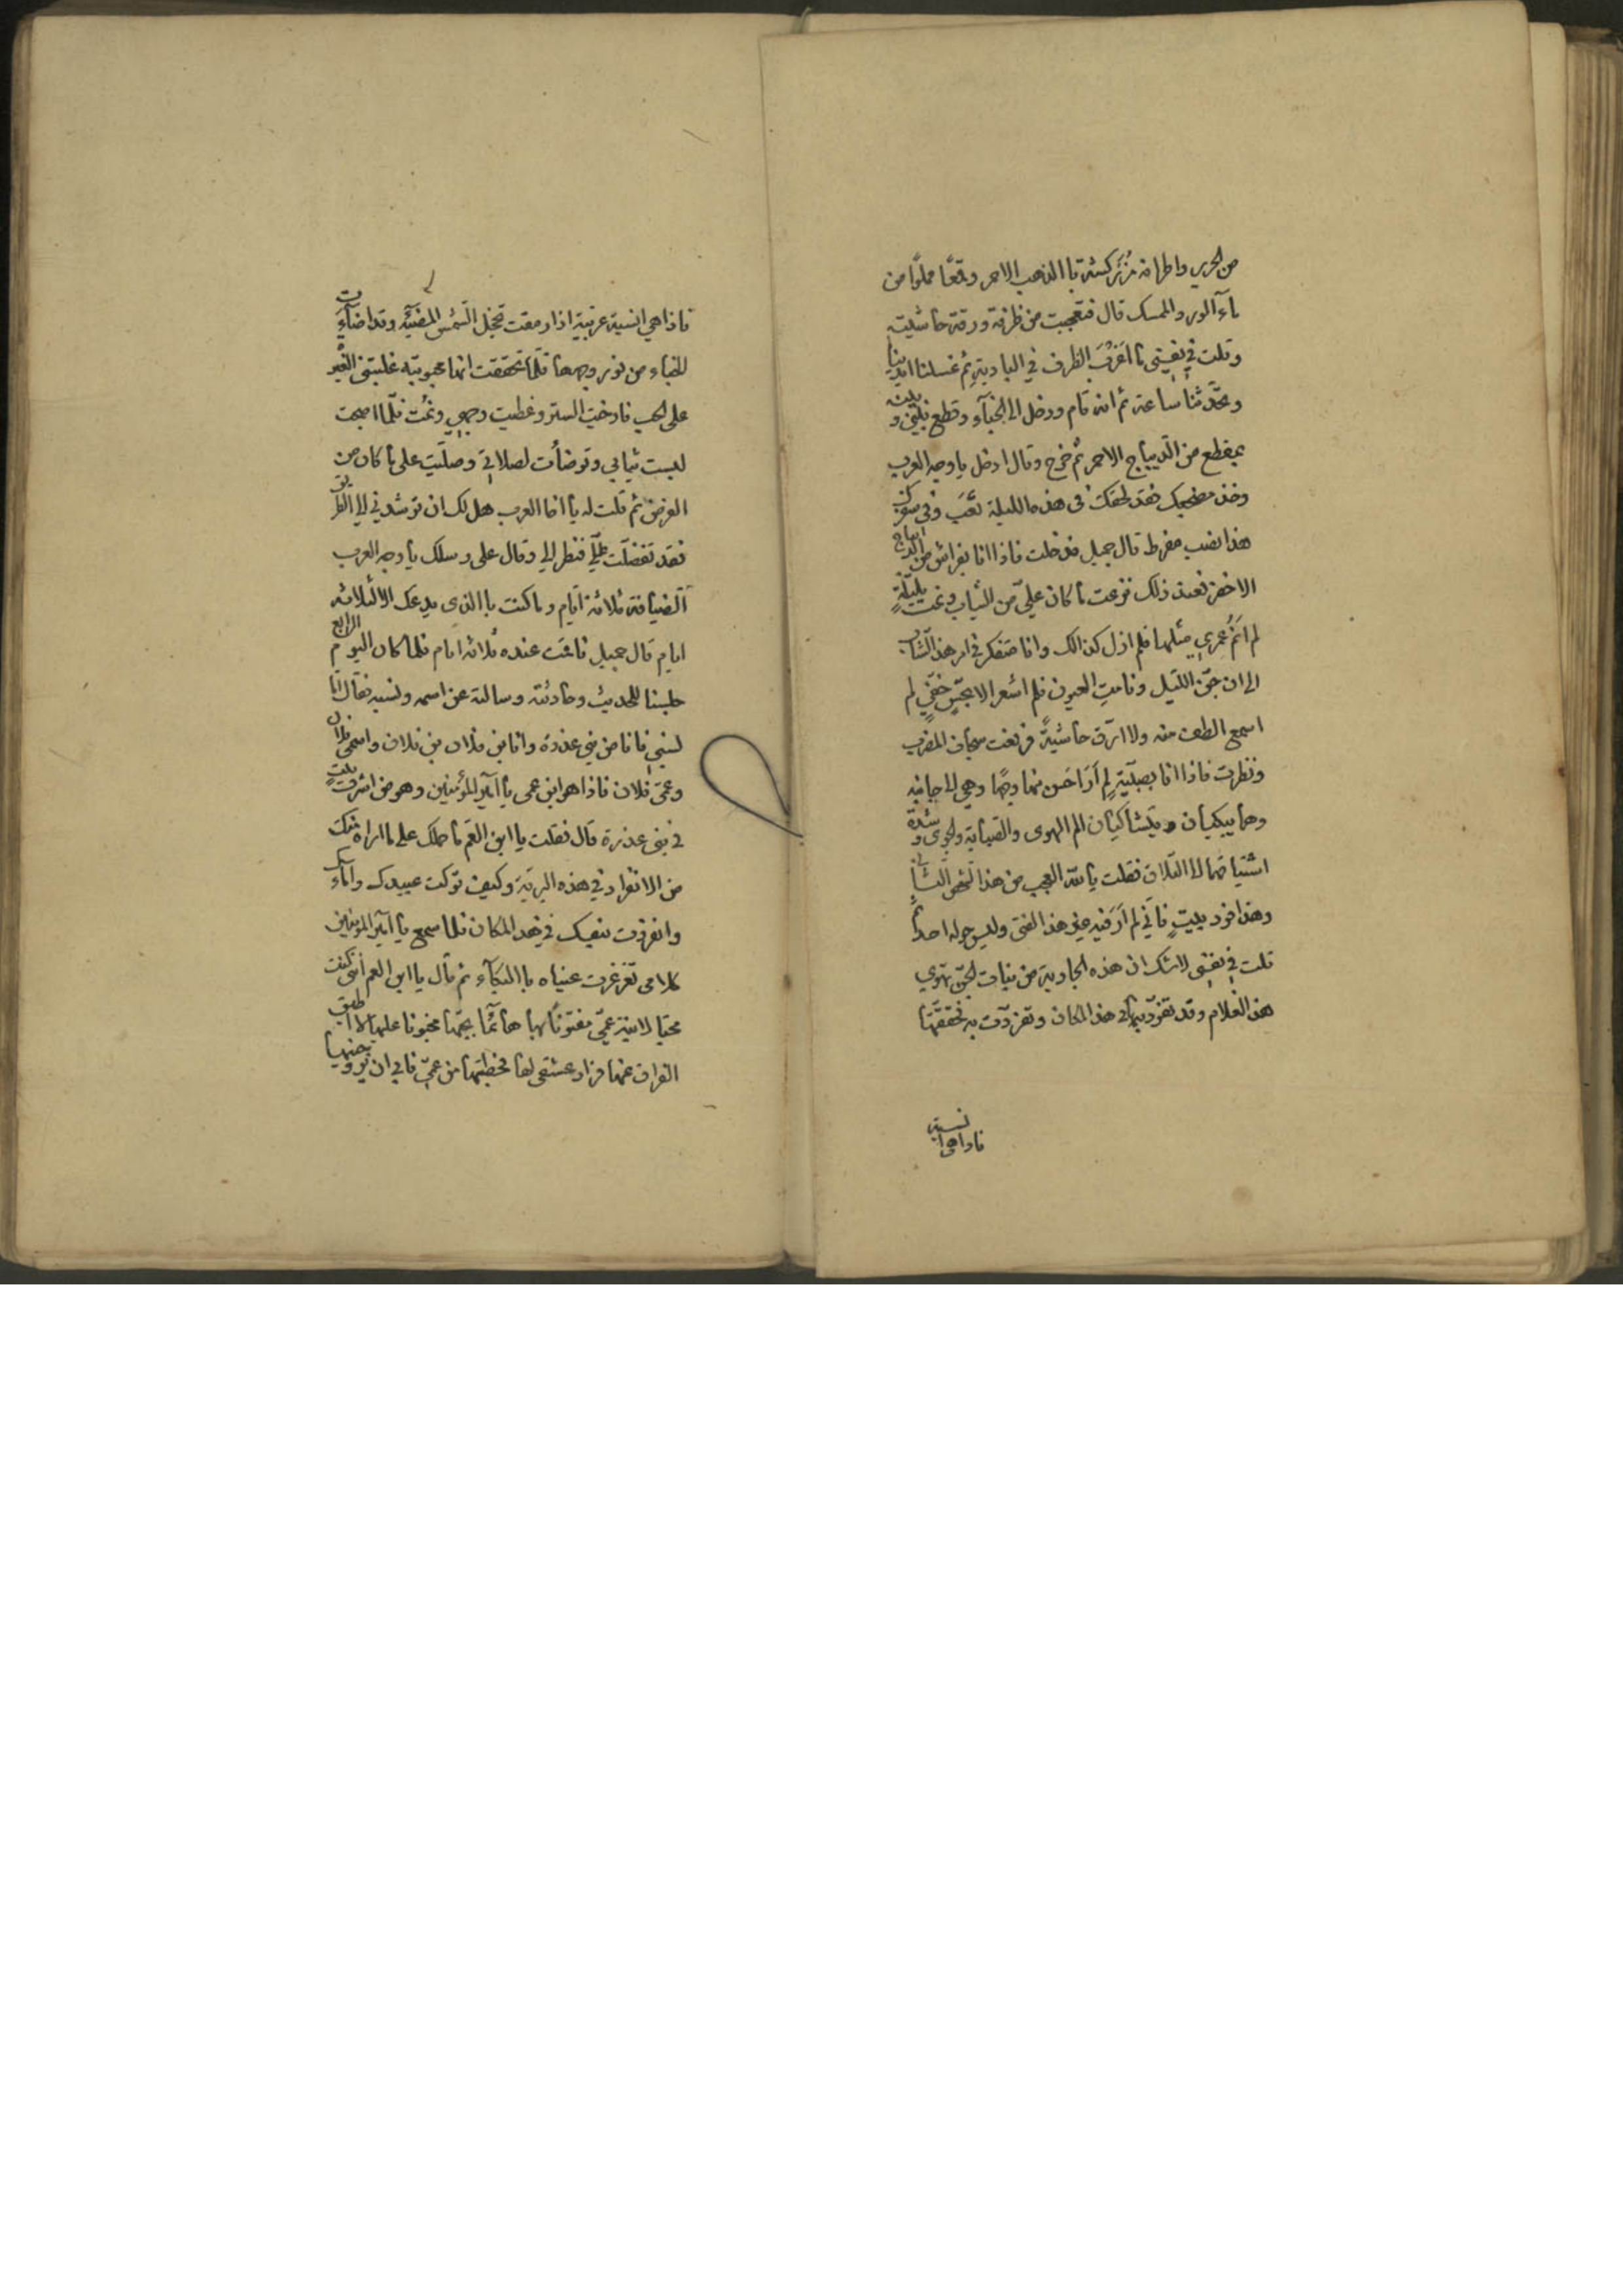 من الحرير واطرافه مُزَركشة با الذهب الاحمر وقمعًا مملوًا من
ماء آلورد والمسك قال فتعجبت من ظرفه ورقة حاشيته
وقلت في نفسي ما اعرفُ الظرف في البادية ثم غسلنا ايدينا
وتحدّثنا ساعة ثم انه قام ودخل الى الخبآء وقطع بيني وبينه
بمقطع من الديباج الاحمر ثم خرج وقال ادخل يا وجه العرب
وخذ مضجعك فقد لحقك في هذه الليلة تعَب وفي سفرك
هذا نصب مفرط قال جميل فدخلت فاذا انا بفراش من الديباج
الاخضر فعند ذلك نزعت ما كان عليّ من الثياب ونمت بليلةٍ
لم انَمْ عمري مثلها فلم ازل كذالك وانا متفكر في امر هذ الشاب
الى ان جنّ الليل ونامتِ العيون فلم اشعر الا بحسٍ خفيّ لم
اسمع الطف منه ولا ارق حاشيةً فرفعت سجاف المضرب
ونظرت فاذا انا بصبيّةٍ لم أرَ احسن منها وجهًا وهي الى جانبه
وهما يبكيان ويتشاكيان الم الهوى والصبابة والجوى وشدة
اشتياقهما الى التلاق فقلت يا لله العجب من هذا الشخص الثاني
وهذا فرد بيتٍ فاني لم أرَ فيه غير هذ الفتى وليس حوله احدًا
قلت في نفسي لا شك ان هذه الجارية من بنات الجنّ تهوي
هذ الغلام وقد تفرّد بها في هذ المكان وتفردّت به فحققتها
فاذا هي انسية
فاذا هي انسية عربية اذا رمقت تخجل الشمس المضيئة وقد اضآءت
الخباء من نور وجهها فلما تحققت انها محبوبته غلبتني الغير
على الحب فارخيت الستر وغطيت وجهي ونمُت فلمّا اصبحت
لبست ثيابي وتوضأت لصلاتي وصلّيت على ما كان من
الفرض ثم قلت له يا اخا العرب هل لك ان ترشدني الى الطريق
فقد تفضلت عليّ فنظر الي وقال على رسلك يا وجه العرب
الضيافة ثلاثة ايام وما كنت با الذي يدعك الا ثلاثة
ايام قال جميل فاقمت عنده ثلاثة ايام فلما كان اليوم الرابع
جلسنا للحديث وحادثته وسالته عن اسمه ونسبه فقال اما
نسبي فانا من بني عذرة وانا بن فلان بن فلان واسمي فلان
وعمي فلان فاذا هو ابن عمي يا امير المؤمنين وهو من اشرف بيت
في بني عذرة قال فقلت يا ابن العم ما حملك على ما اراه منك
من الانفراد في هذه البريّة وكيف تركت عبيدك واماءك
وانفردت بنفسك في هذ المكان فلما سمع يا امير المؤمنين
كلامي تغرغرت عيناه با البكآء ثم قال يا ابن العم أنني كنت
محبّا لابنة عميّ مفتونًا بها هائمًا بحبّها مجنونا عليها لا اطيق
الفراق عنها فزاد عشقي لها فخطبتها من عمي فابى ان يزوجنيها